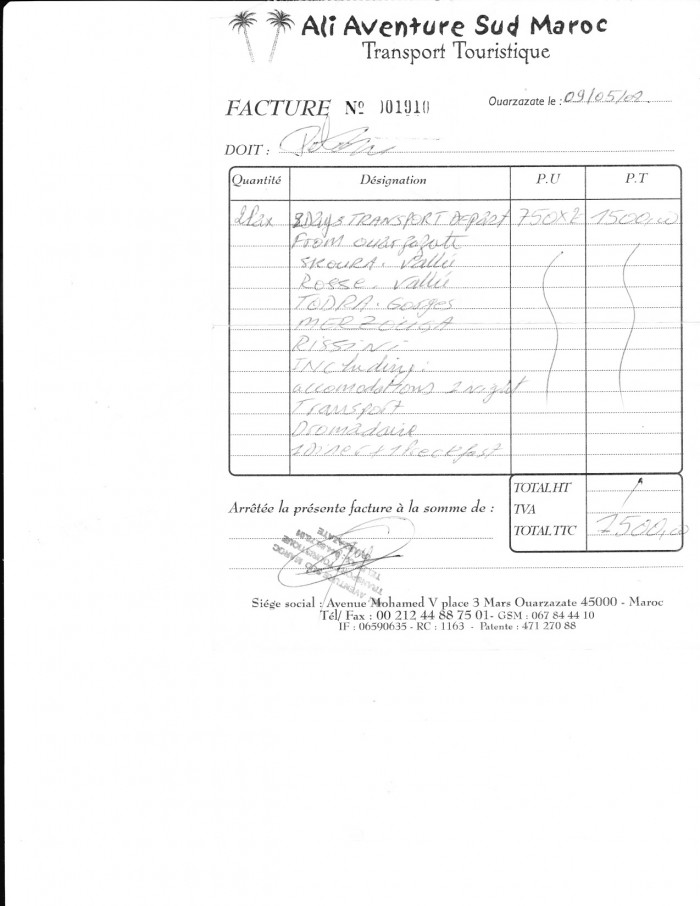 Ali Aventure Sud Maroc
Transport Touristique
FACTURE Nº 001910
Ouarzazate le : 09/05/02
DOIT :
Quantité Désignation P.U P.T
2Pax 3Days TRANSPORT DEPART 750x2 1500,00
From ouarzazate
SKOURA. Vallée
Rosse. Vallée
TODRA. Gorges
MERZOUGA
RISSINI
INCluding:
accomodations 2 night
Transport
Dromadaire
TOTAL HT
Arrêtée la présente facture à la somme de :
TVA
TOTAL TTC 1500,00
Siége social : Avenue Mohamed V place 3 Mars Ouarzazate 45000 - Maroc
Tél/ Fax : 00 212 44 88 75 01- GSM : 067 84 44 10
IF : 06590635 - RC : 1163 - Patente : 471 270 88